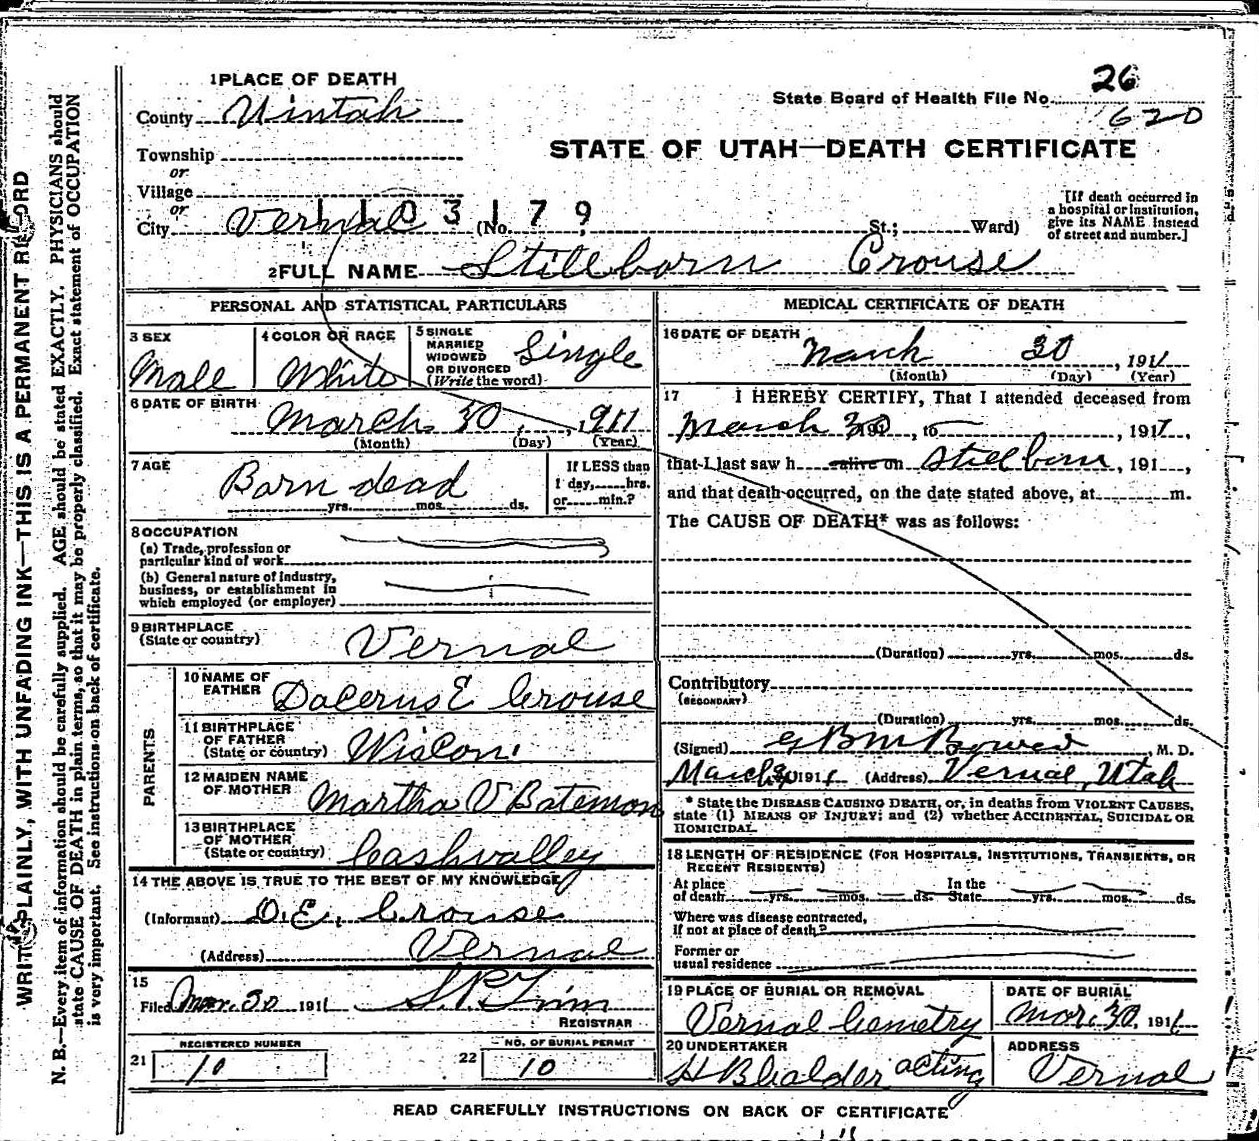 26
State Board of Health File No.
620
1 PLACE OF DEATH
County Uintah
Township
or
Village
or
City Vernal (No. St.; Ward)
1103179
[If death occurred in a hospital or institution, give its NAME instead of street and number.]
STATE OF UTAH—DEATH CERTIFICATE
2 FULL NAME Stillborn Crouse
PERSONAL AND STATISTICAL PARTICULARS
3 SEX
Male
4 COLOR OR RACE
White
5 SINGLE
MARRIED
WIDOWED
OR DIVORCED
(Write the word)
Single
6 DATE OF BIRTH
March 30, 1911
(Month) (Day) (Year)
7 AGE
Born dead
yrs. mos. ds.
If LESS than
1 day, hrs.
or min.?
8 OCCUPATION
(a) Trade, profession or
particular kind of work
(b) General nature of industry,
business, or establishment in
which employed (or employer)
9 BIRTHPLACE
(State or country) Vernal
PARENTS
10 NAME OF
FATHER E Crouse
11 BIRTHPLACE
OF FATHER
(State or country) Wiscon.
12 MAIDEN NAME
OF MOTHER Martha V Bateman
13 BIRTHPLACE
OF MOTHER
(State or country) Cashvalley
14 THE ABOVE IS TRUE TO THE BEST OF MY KNOWLEDGE
(Informant) D.E. Crouse
(Address) Vernal
15
Filed Mar. 30 1911
REGISTRAR
REGISTERED NUMBER
21 10
NO. OF BURIAL PERMIT
22 10
MEDICAL CERTIFICATE OF DEATH
16 DATE OF DEATH
March 30, 1911
(Month) (Day) (Year)
17 I HEREBY CERTIFY, That I attended deceased from
March 30, to , 191
that I last saw h alive on Stillborn, 191 ,
and that death occurred, on the date stated above, at m.
The CAUSE OF DEATH* was as follows:
(Duration) yrs. mos. ds.
Contributory
(SECONDARY)
(Duration) yrs. mos. ds.
(Signed) , M. D.
March 30 1911 (Address) Vernal, Utah
* State the DISEASE CAUSING DEATH, or, in deaths from VIOLENT CAUSES,
state (1) MEANS OF INJURY; and (2) whether ACCIDENTAL, SUICIDAL OR
HOMICIDAL.
18 LENGTH OF RESIDENCE (FOR HOSPITALS, INSTITUTIONS, TRANSIENTS, OR
RECENT RESIDENTS)
At place
of death yrs. mos. ds.
In the
State yrs. mos. ds.
Where was disease contracted,
If not at place of death?
Former or
usual residence
19 PLACE OF BURIAL OR REMOVAL
Vernal Cemetry
DATE OF BURIAL
Mar. 30, 191
20 UNDERTAKER
acting
ADDRESS
Vernal
READ CAREFULLY INSTRUCTIONS ON BACK OF CERTIFICATE
WRITE PLAINLY, WITH UNFADING INK—THIS IS A PERMANENT RECORD
N. B.—Every item of information should be carefully supplied. AGE should be stated EXACTLY. PHYSICIANS should
state CAUSE OF DEATH in plain terms, so that it may be properly classified. Exact statement of OCCUPATION
is very important. See instructions on back of certificate.